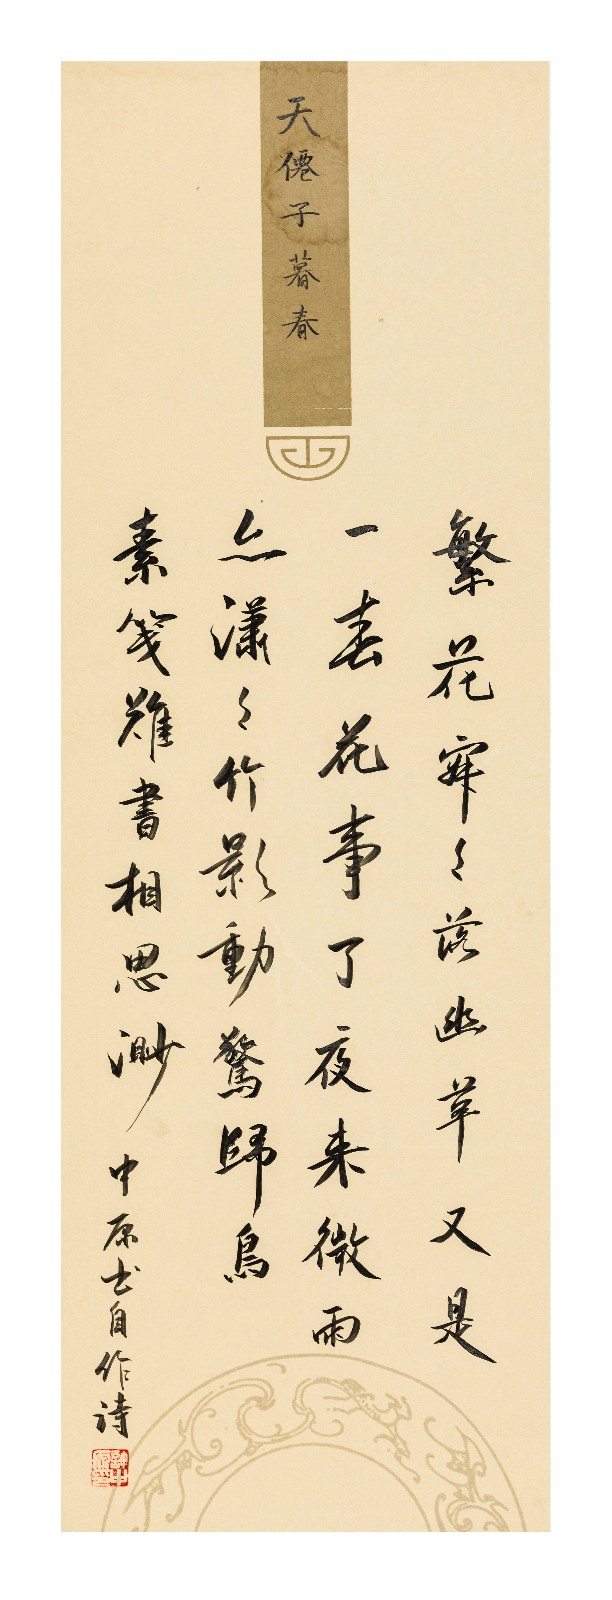 天僊子暮春
繁花寂々落幽草又是
一春花事了夜来微雨
亦瀟々竹影動驚歸鳥
素箋難書相思渺
中原书自作詩